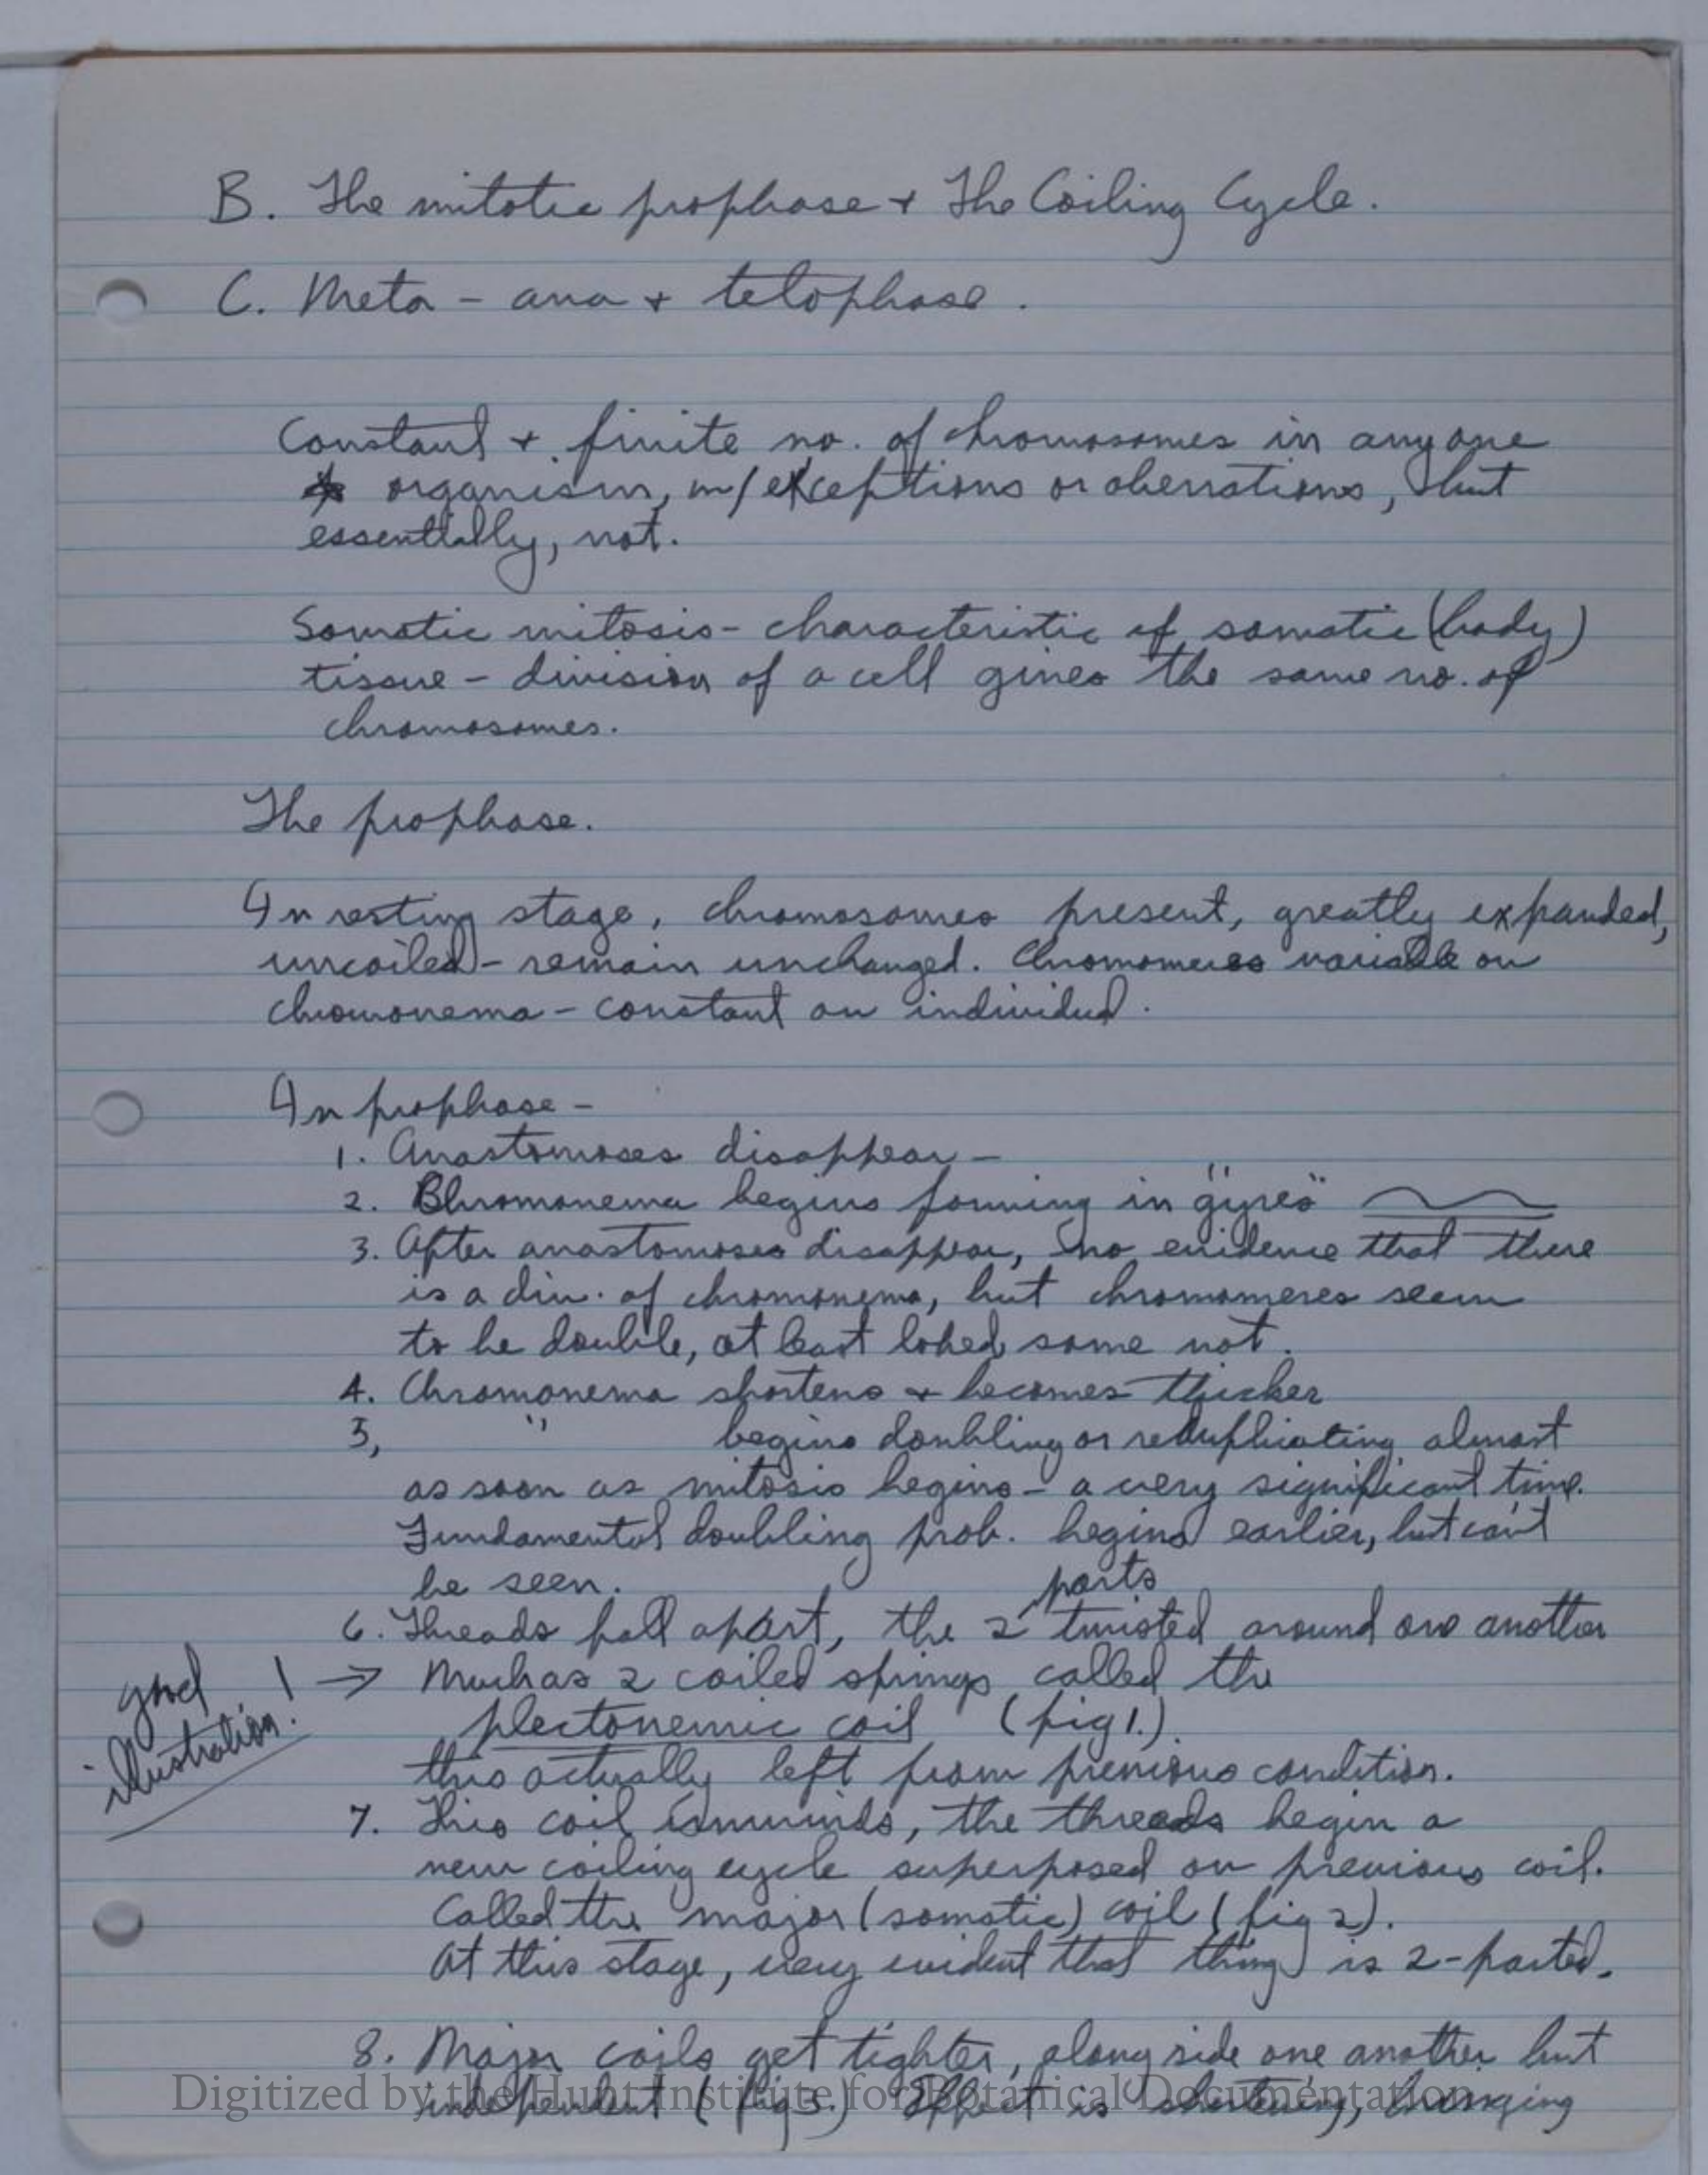 B. The mitotic prophase + The Coiling Cycle.
C. Meta - ana + telophase.
Constant + finite no. of chromosomes in any one
organism, w/ exceptions or aberrations, but
essentially, not.
Somatic mitosis - characteristic of somatic (body)
tissue - division of a cell gives the same no. of
chromosomes.
The prophase.
In resting stage, chromosomes present, greatly expanded,
uncoiled - remain unchanged. Chromomeres variable on
chromonema - constant on individual.
In prophase -
1. Anastomoses disappear -
2. Chromonema begins forming in "gyres"
3. After anastomoses disappear, no evidence that there
is a div. of chromonema, but chromomeres seem
to be double, at least lobed, some not.
4. Chromonema shortens + becomes thicker
5, " begins doubling or reduplicating almost
as soon as mitosis begins - a very significant time.
Fundamental doubling prob. begins earlier, but can't
be seen.
parts
6. Threads fall apart, the 2 twisted around one another
good illustration! → Much as 2 coiled springs called the
plectonemic coil (fig 1.)
this actually left from previous condition.
7. This coil unwinds, the threads begin a
new coiling cycle superposed on previous coil.
Called the major (somatic) coil (fig 2).
At this stage, very evident that thing is 2-parted.
8. Major coils get tighter, along side one another but
independent (fig 3.) Effect is shortening, bringing
Digitized by the Hunt Institute for Botanical Documentation